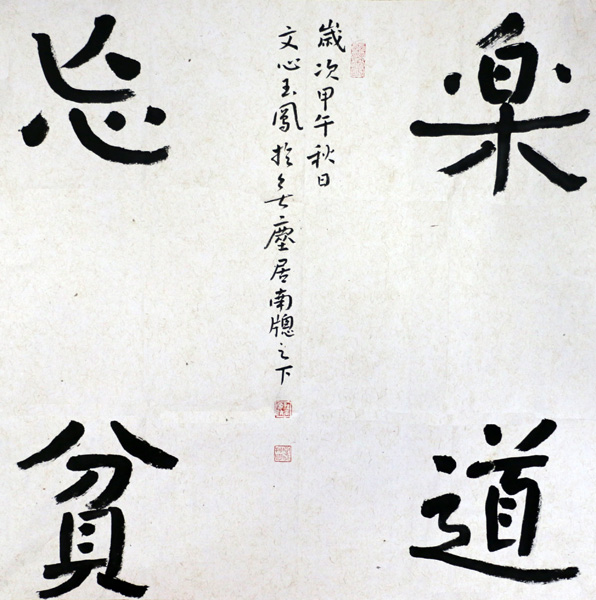 楽道
歲次甲午秋日
文心玉鳳於無塵居南牕之下
忘貧